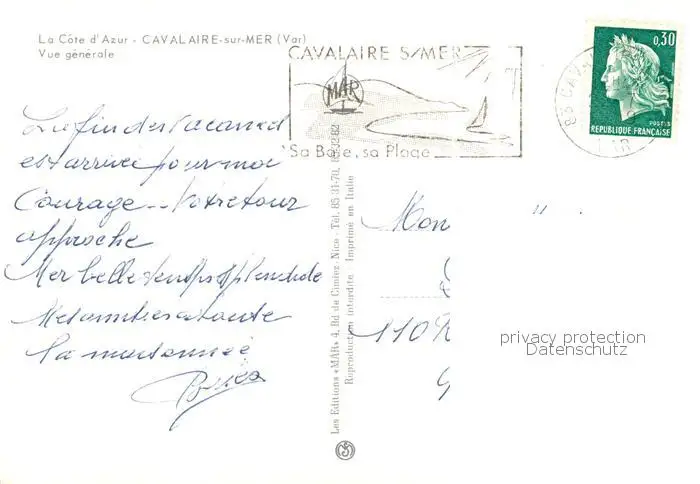 La Côte d'Azur - CAVALAIRE-sur-MER (Var)
Vue générale
CAVALAIRE S/MER
MAR
Sa Baie, sa Plage
83 CAV
VAR
0,30
POSTES
REPUBLIQUE FRANÇAISE
La fin des vacances
est arrivée pour moi
Courage... Votre tour
approche
Mer belle temps splendide
Mes amitiés a toute
la maisonnée
Les Editions «MAR» 4, Bd de Cimiez Nice - Tél. 85 31-70, 85-32-82
Reproduction interdite Imprimé en Italie
Mon
110
privacy protection
Datenschutz